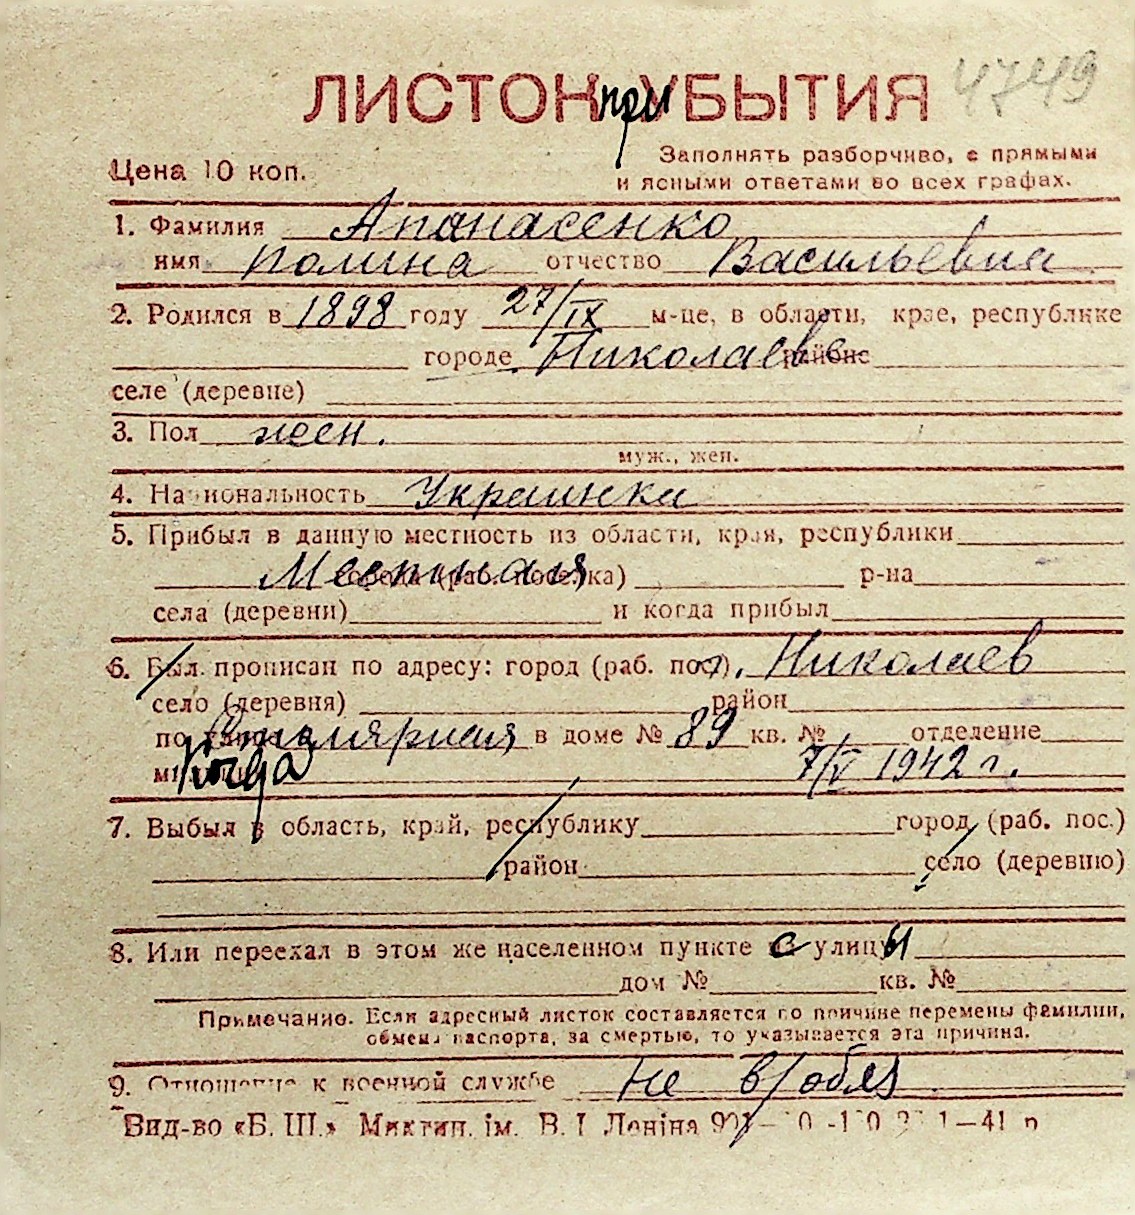 4749
ЛИСТОК приБЫТИЯ
Цена 10 коп.
Заполнять разборчиво, с прямыми
и ясными ответами во всех графах.
1. Фамилия Апанасенко
имя Полина отчество Васильевна
2. Родился в 1898 году 27/IX м-це, в области, крае, республике
городе Николаеве районе
селе (деревне)
3. Пол жен.
муж., жен.
4. Национальность Украинка
5. Прибыл в данную местность из области, края, республики
Местная города (раб. поселка) р-на
села (деревни) и когда прибыл
6. Был прописан по адресу: город (раб. пос.) Николаев
село (деревня) район
по улице Столярная в доме № 89 кв. № отделение
милиции когда 7/V 1942 г.
7. Выбыл в область, край, республику город (раб. пос.)
район село (деревню)
8. Или переехал в этом же населенном пункте с улицы
дом № кв. №
Примечание. Если адресный листок составляется по причине перемены фамилии,
обмена паспорта, за смертью, то указывается эта причина.
9. Отношение к военной службе не в/обяз
Вид-во «Б. Ш.» Миктип. ім. В. І Леніна